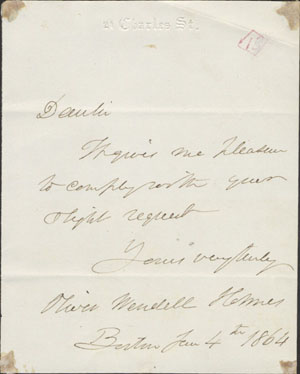 21 Charles St.
Dear Sir
It gives me pleasure
to comply with your
slight request
Yours very truly
Oliver Wendell Holmes
Boston Jan 4th 1864